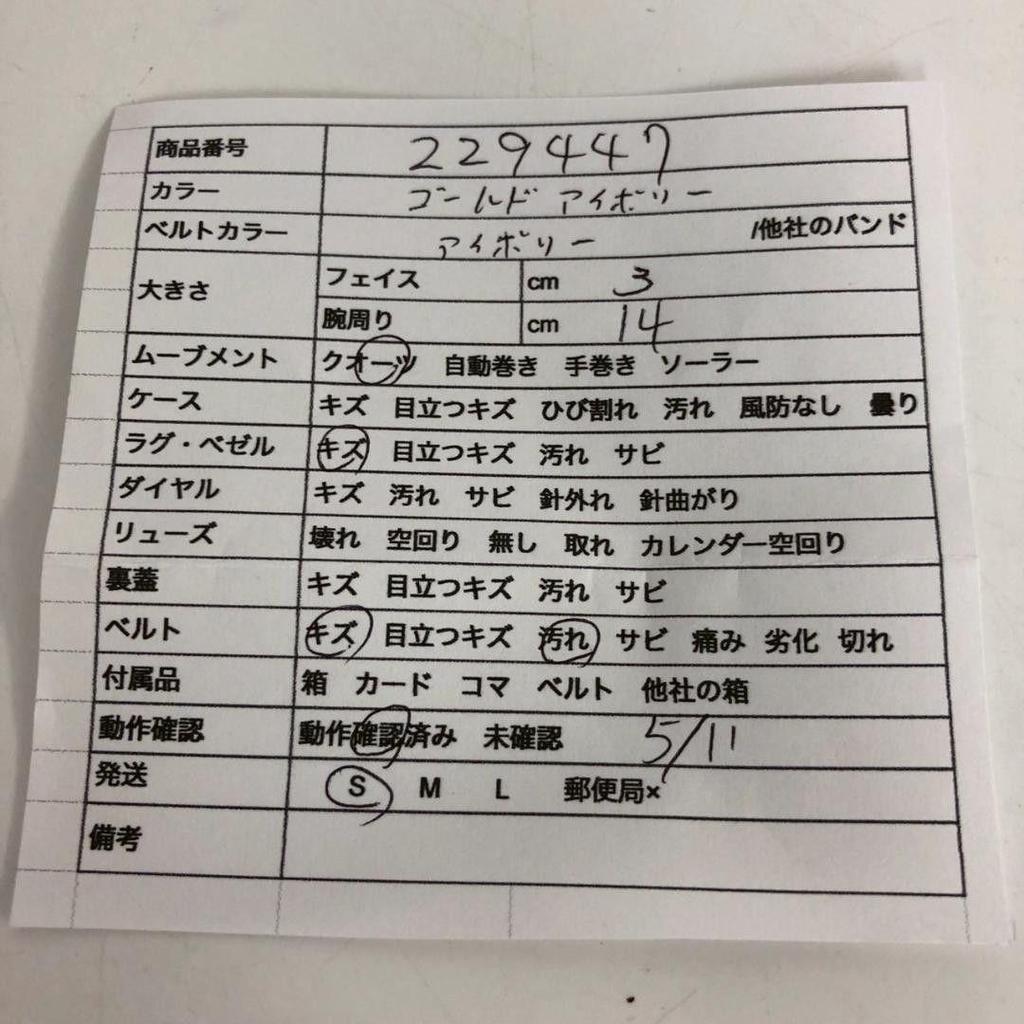 商品番号 229447
カラー ゴールド アイボリー
ベルトカラー アイボリー /他社のバンド
大きさ フェイス cm 3
腕周り cm 14
ムーブメント クオーツ 自動巻き 手巻き ソーラー
ケース キズ 目立つキズ ひび割れ 汚れ 風防なし 曇り
ラグ・ベゼル キズ 目立つキズ 汚れ サビ
ダイヤル キズ 汚れ サビ 針外れ 針曲がり
リューズ 壊れ 空回り 無し 取れ カレンダー空回り
裏蓋 キズ 目立つキズ 汚れ サビ
ベルト キズ 目立つキズ 汚れ サビ 痛み 劣化 切れ
付属品 箱 カード コマ ベルト 他社の箱
動作確認 動作確認済み 未確認 5/11
発送 S M L 郵便局×
備考